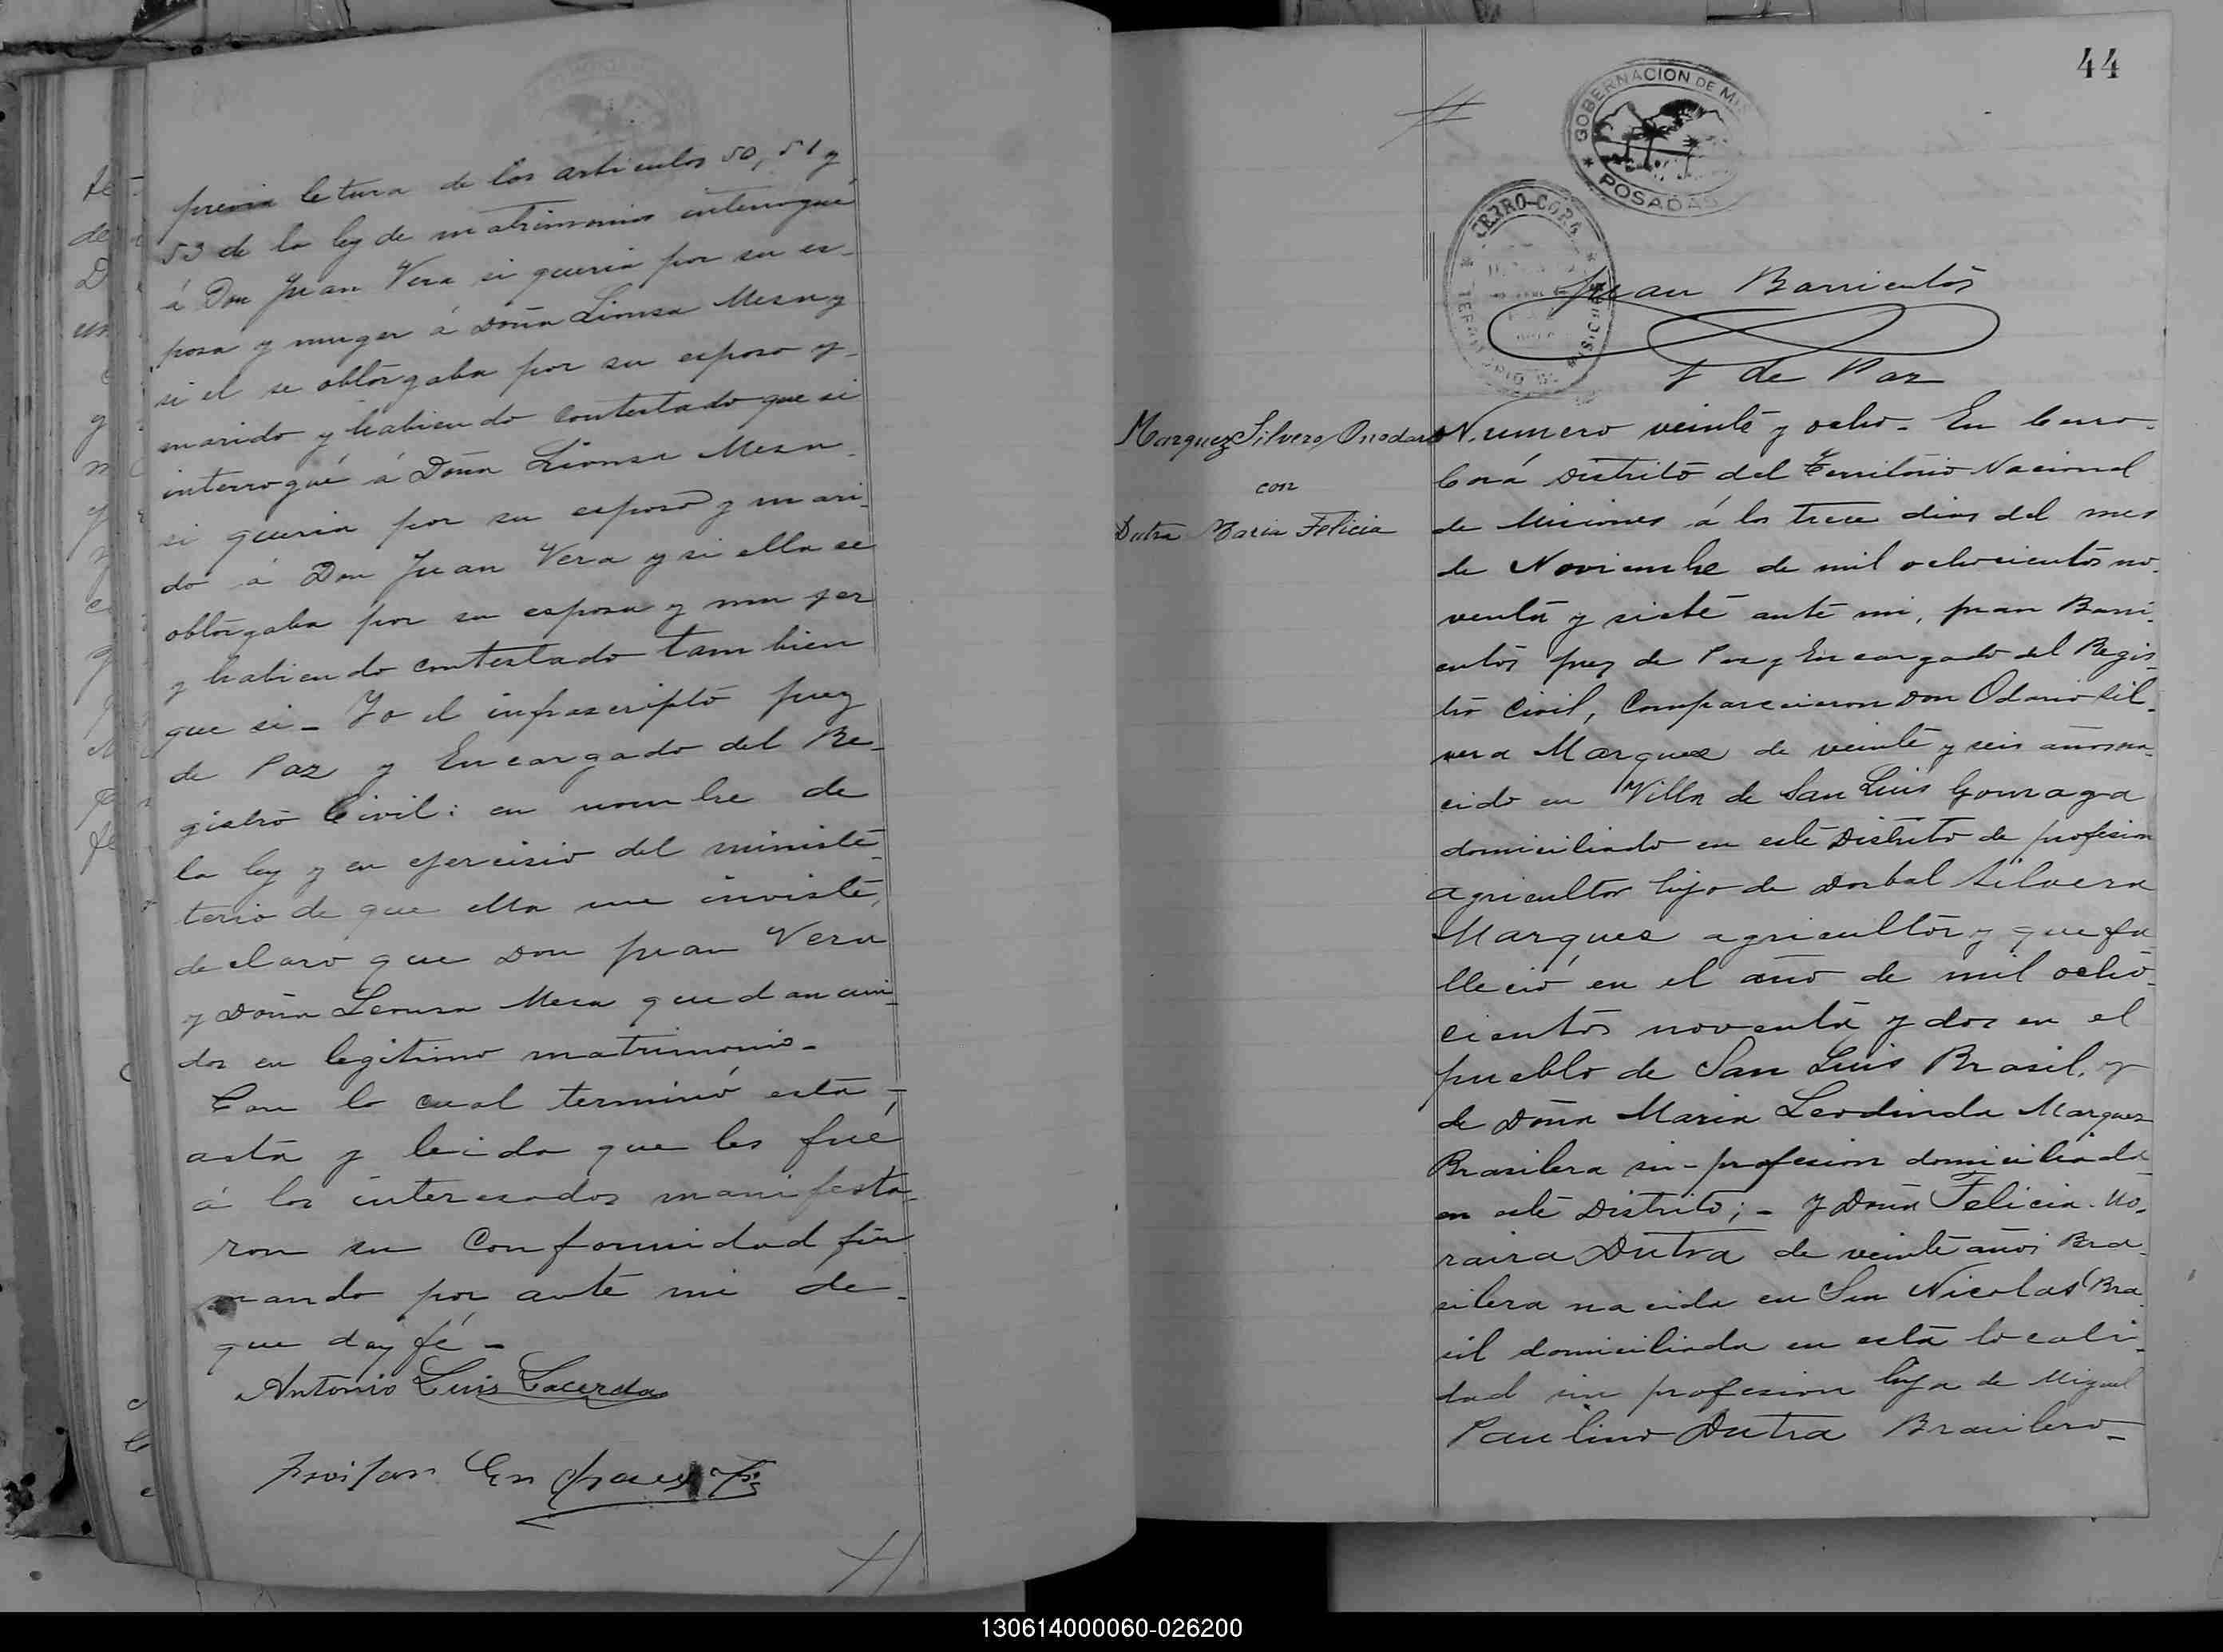 previa letura de los articulos 50, 51 y
53 de la ley de matrimonio interrogué
á Don Juan Vera si queria por su es-
posa y muger á Doña Mesa y
si el se oblorgaba por su esposo y
marido y habiendo contestado que si
interrogué á Doña Mesa
si queria por su esposo y mari-
do á Don Juan Vera y si ella se
oblorgaba por su esposa y muger
y habiendo contestado tambien
que si - Yo el infrascripto Juez
de Paz y Encargado del Re-
gistro Civil: en nombre de
la ley y en ejercisio del ministe-
terio de que ella me inviste,
declaro que Don Juan Vera
y Doña Mesa quedan uni-
dos en legitimo matrimonio-
Con lo cual terminó esta -
acta y leida que les fué
á los interesados manifesta-
ron su conformidad fir
mando por ante mi de-
que doy fé -
Antonio Luis Lacerda
44
GOBERNACION DE MI
POSADAS
CERRO-CORA
Juan Barrientos
J de Paz
Marquez Silvero
con
Dutra Maria Felicia
Numero veinte y ocho - En Cerro-
Corá Distrito del Territorio Nacional
de Misiones á los trece dias del mes
de Noviembre de mil ochocientos no-
venta y siete ante mi, Juan Barri-
entos Juez de Paz y Encargado del Regis-
tro Civil, Comparecieron Don Odario Sil-
vera Marques de veinte y seis años na-
cido en Villa de San Luis Gonzaga
domiciliado en este Distrito de profesion
agricultor hijo de Dorbal Silvera
Marques agricultor y que fa-
lleció en el año de mil ocho-
cientos noventa y dos en el
pueblo de San Luis Brasil, y
de Doña Maria Leodinda Marques
Brasilera sin-profesion domiciliada
en este Distrito; - Y Doña Felicia Mo-
raira Dutra de veinte años Bra-
silera nacida en San Nicolas Bra-
sil domiciliada en esta locali-
dad sin profesion hija de Miguel
Paulino Dutra Brasilero-
130614000060-026200